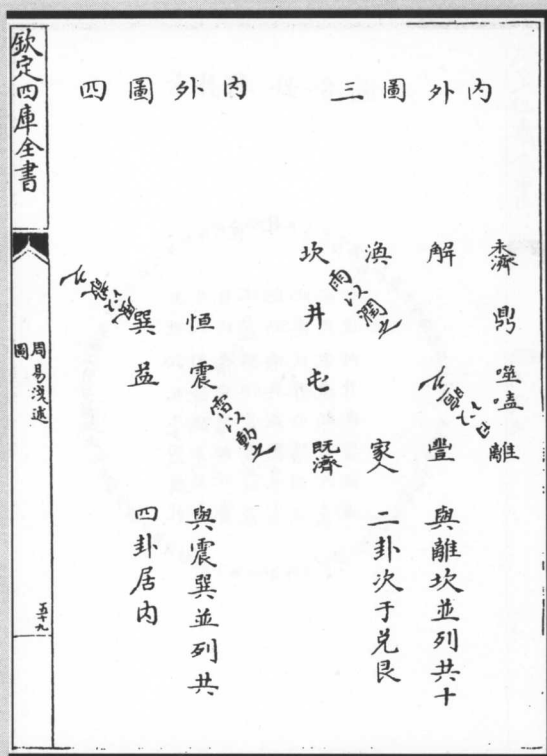 内外圖三
未濟 鼎 噬嗑 離
解 日以晅之 豐 與離坎並列共十
渙 雨以潤之 家人 二卦次于兌艮
坎 井 屯 既濟
内外圖四
恒 震 雷以動之 與震巽並列共
風以散之 巽 益 四卦居内
欽定四庫全書
周易淺述
圖
五十九